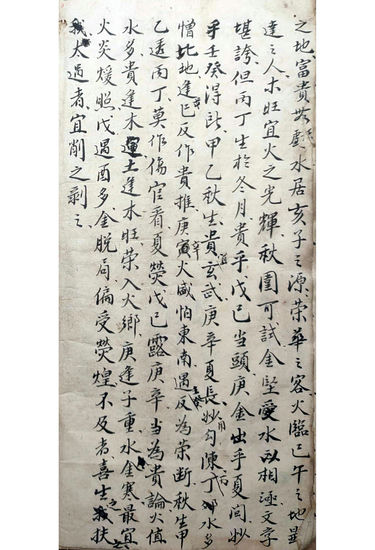 之地富貴水居亥子之源榮華之客火臨巳午之地顯
達之人木旺宜火之光輝秋闈可試金堅愛水以相文字
堪誇但丙丁生於冬月貴乎戊己當頭庚金出乎夏間妙
乎壬癸得甲乙秋生貴玄武庚辛夏長妙勾陳丁丙水多
憎北地逢反作貴推庚火咸怕東南遇反為榮斷秋生甲
乙透丙丁莫作傷官看夏熒戊己露庚辛當為貴論火值
水多貴逢木運土逢木旺榮入火鄉庚逢子重水金寒最宜
火炎煖照戊遇酉多金脫局偏受熒煌不及者喜生扶
我太過者宜削之剝之